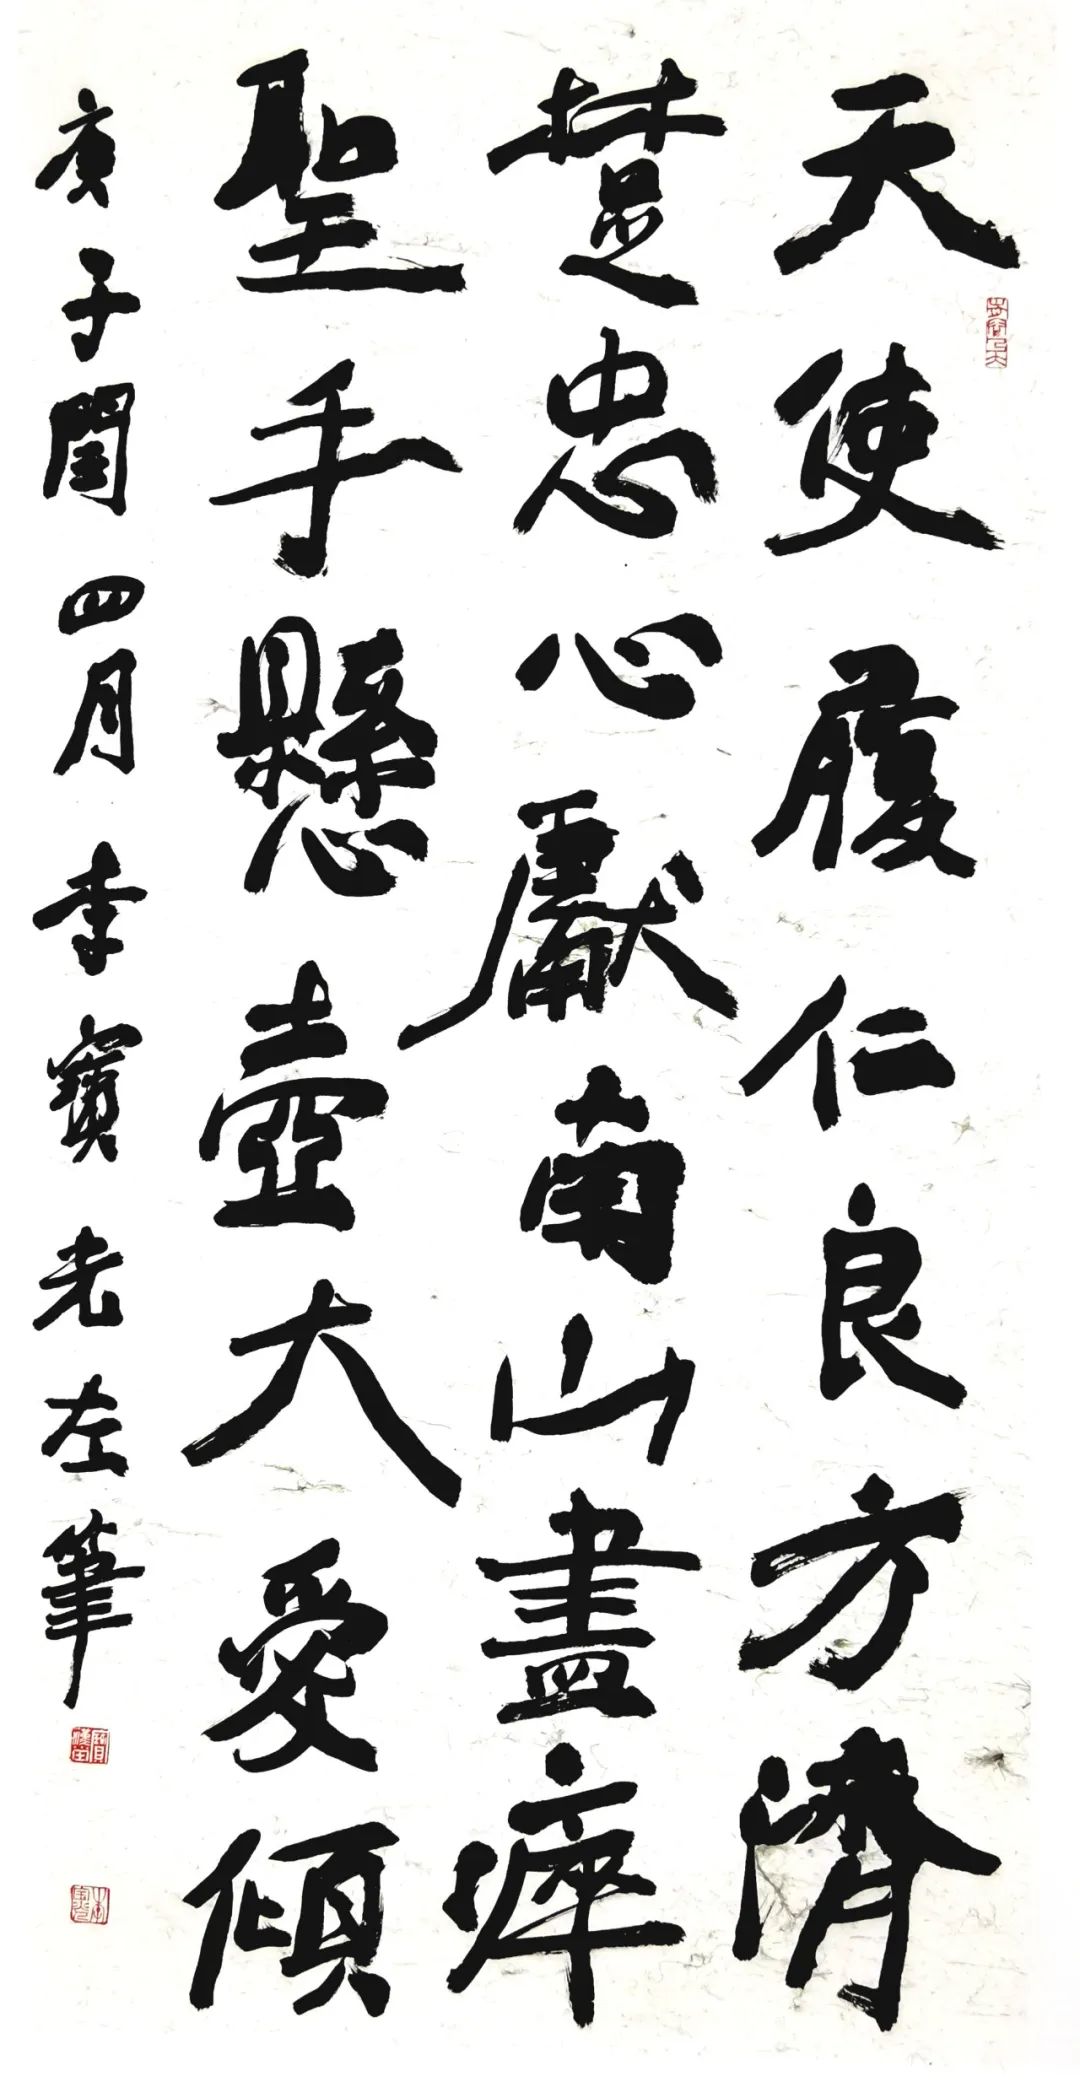 天使履仁良方濟
楚忠心獻南山盡瘁
聖手懸壺大愛傾
庚子閏四月李寶光左筆